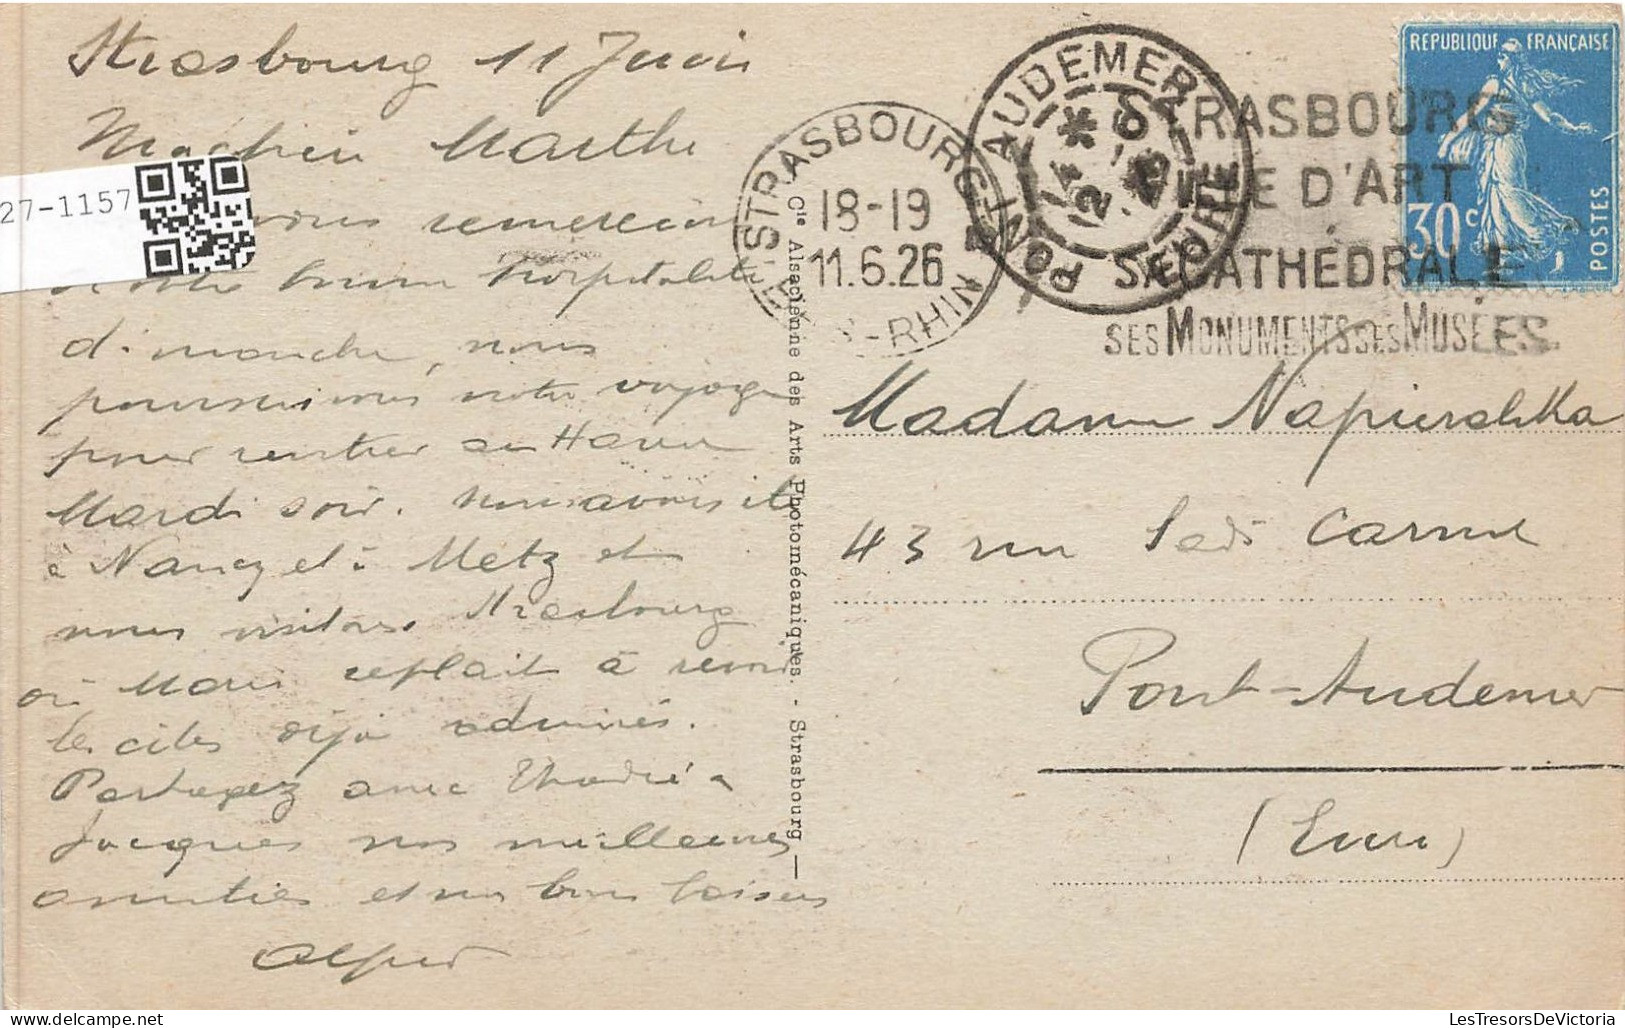 Strasbourg 11 Juin
Ma chère Marthe
27-1157
vous remercions
votre bonne hospitalité
dimanche, nous
poursuivons notre voyage
pour rentrer au Havre
Mardi soir. Nous avons été
à Nancy et à Metz et
nous visitons Strasbourg
où Marie se plait à revoir
les cités déjà admirées.
Partagez avec
Jacques nos meilleures
amitiés et nos bons baisers
Alfred
Cie Alsacienne des Arts Photomécaniques. - Strasbourg
STRASBOURG
18-19
11.6.26
BAS-RHIN
PONT AUDEMER
14 * 
12 - 6
26
EURE
STRASBOURG
VILLE D'ART
SA CATHÉDRALE
SES MONUMENTS SES MUSÉES.
REPUBLIQUE FRANÇAISE
30c
POSTES
Madame Napieralska
43 rue Sadi Carnot
Pont-Audemer
(Eure)
LesTresorsDeVictoria